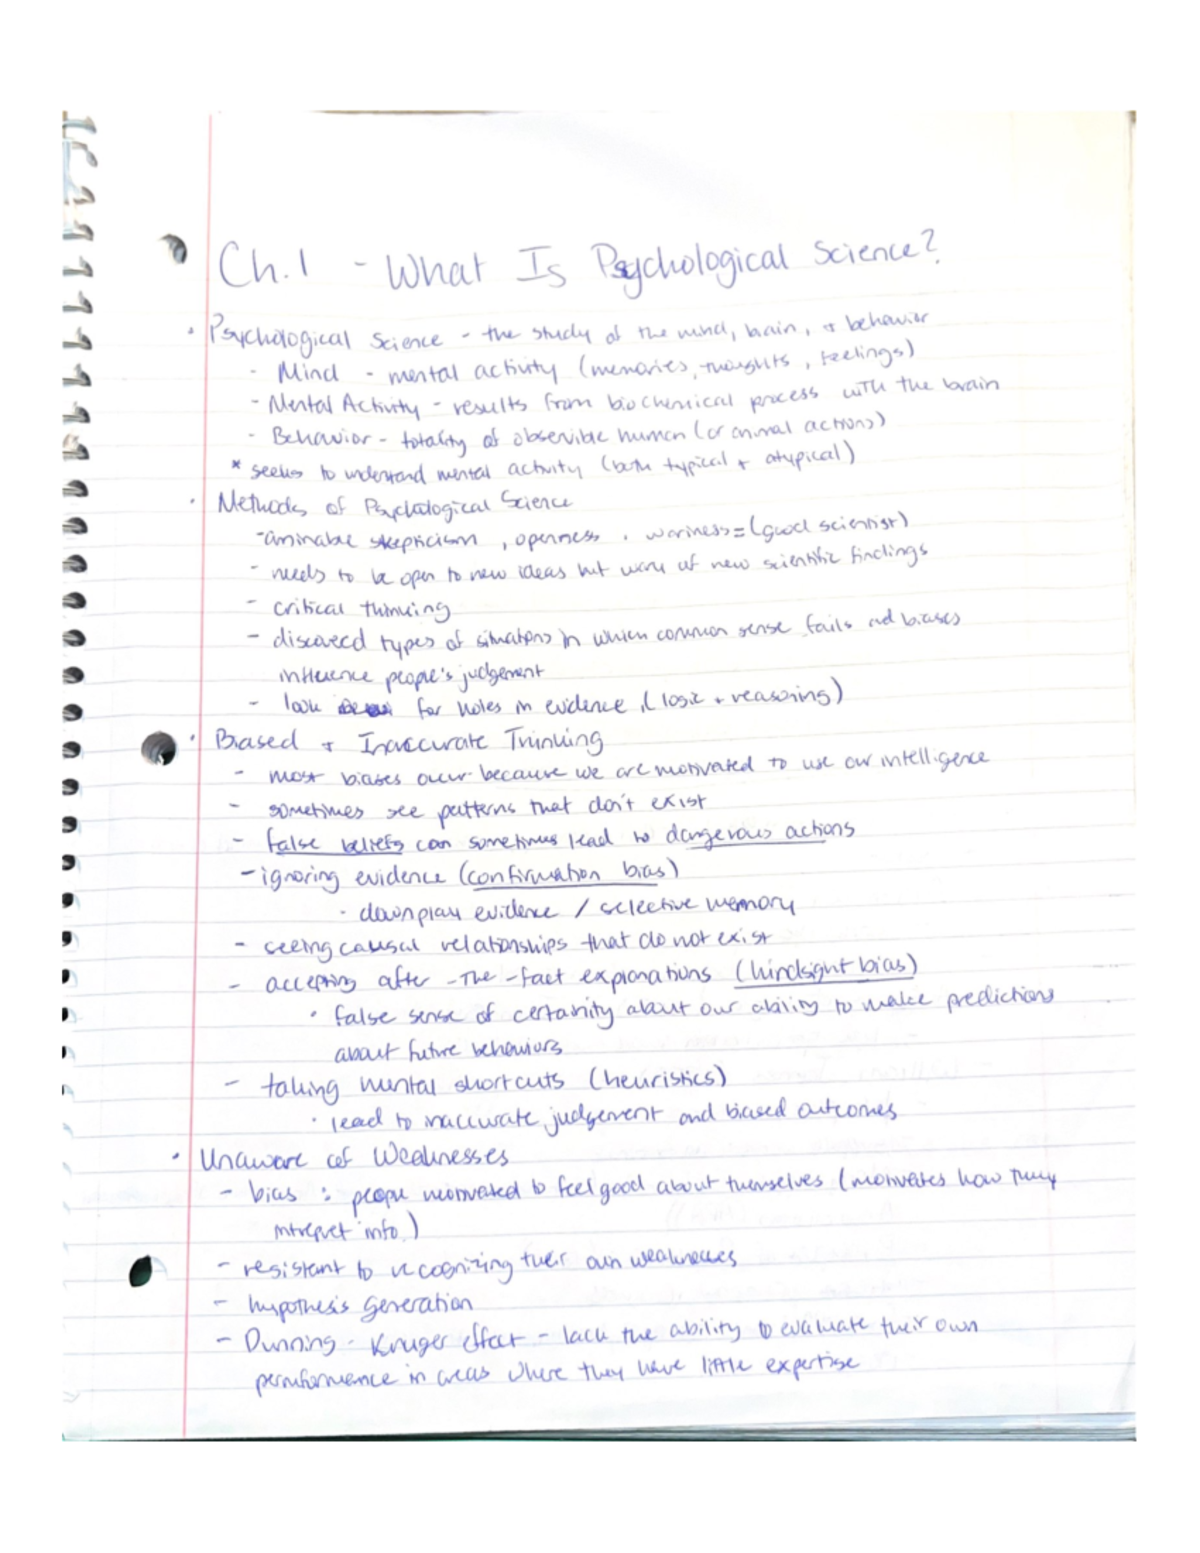 Ch.1 - What Is Psychological Science?
• Psychological Science - the study of the mind, brain, + behavior
- Mind - mental activity (memories, thoughts, feelings)
- Mental Activity - results from biochemical process with the brain
- Behavior - totality of observible human (or animal actions)
* seeks to understand mental activity (both typical + atypical)
• Methods of Psychological Science
- aminable skepticism, openness, wariness = (good scientist)
- needs to be open to new ideas but wary of new scientific findings
- critical thinking
- discovered types of situations in which common sense fails and biases
influence people's judgement
- look for holes in evidence, (logic + reasoning)
• Biased + Inaccurate Thinking
- most biases occur because we are motivated to use our intelligence
- sometimes see patterns that don't exist
- false beliefs can sometimes lead to dangerous actions
- ignoring evidence (confirmation bias)
• downplay evidence / selective memory
- seeing causal relationships that do not exist
- accepting after-the-fact explanations (hindsight bias)
• false sense of certainity about our ability to make predictions
about future behaviors
- taking mental shortcuts (heuristics)
• lead to inaccurate judgement and biased outcomes
• Unaware of Weaknesses
- bias: people motivated to feel good about themselves (motivates how they
intrepret info.)
- resistant to recognizing their own weaknesses
- hypothesis generation
- Dunning-Kruger effect - lack the ability to evaluate their own
in areas where they have little expertise